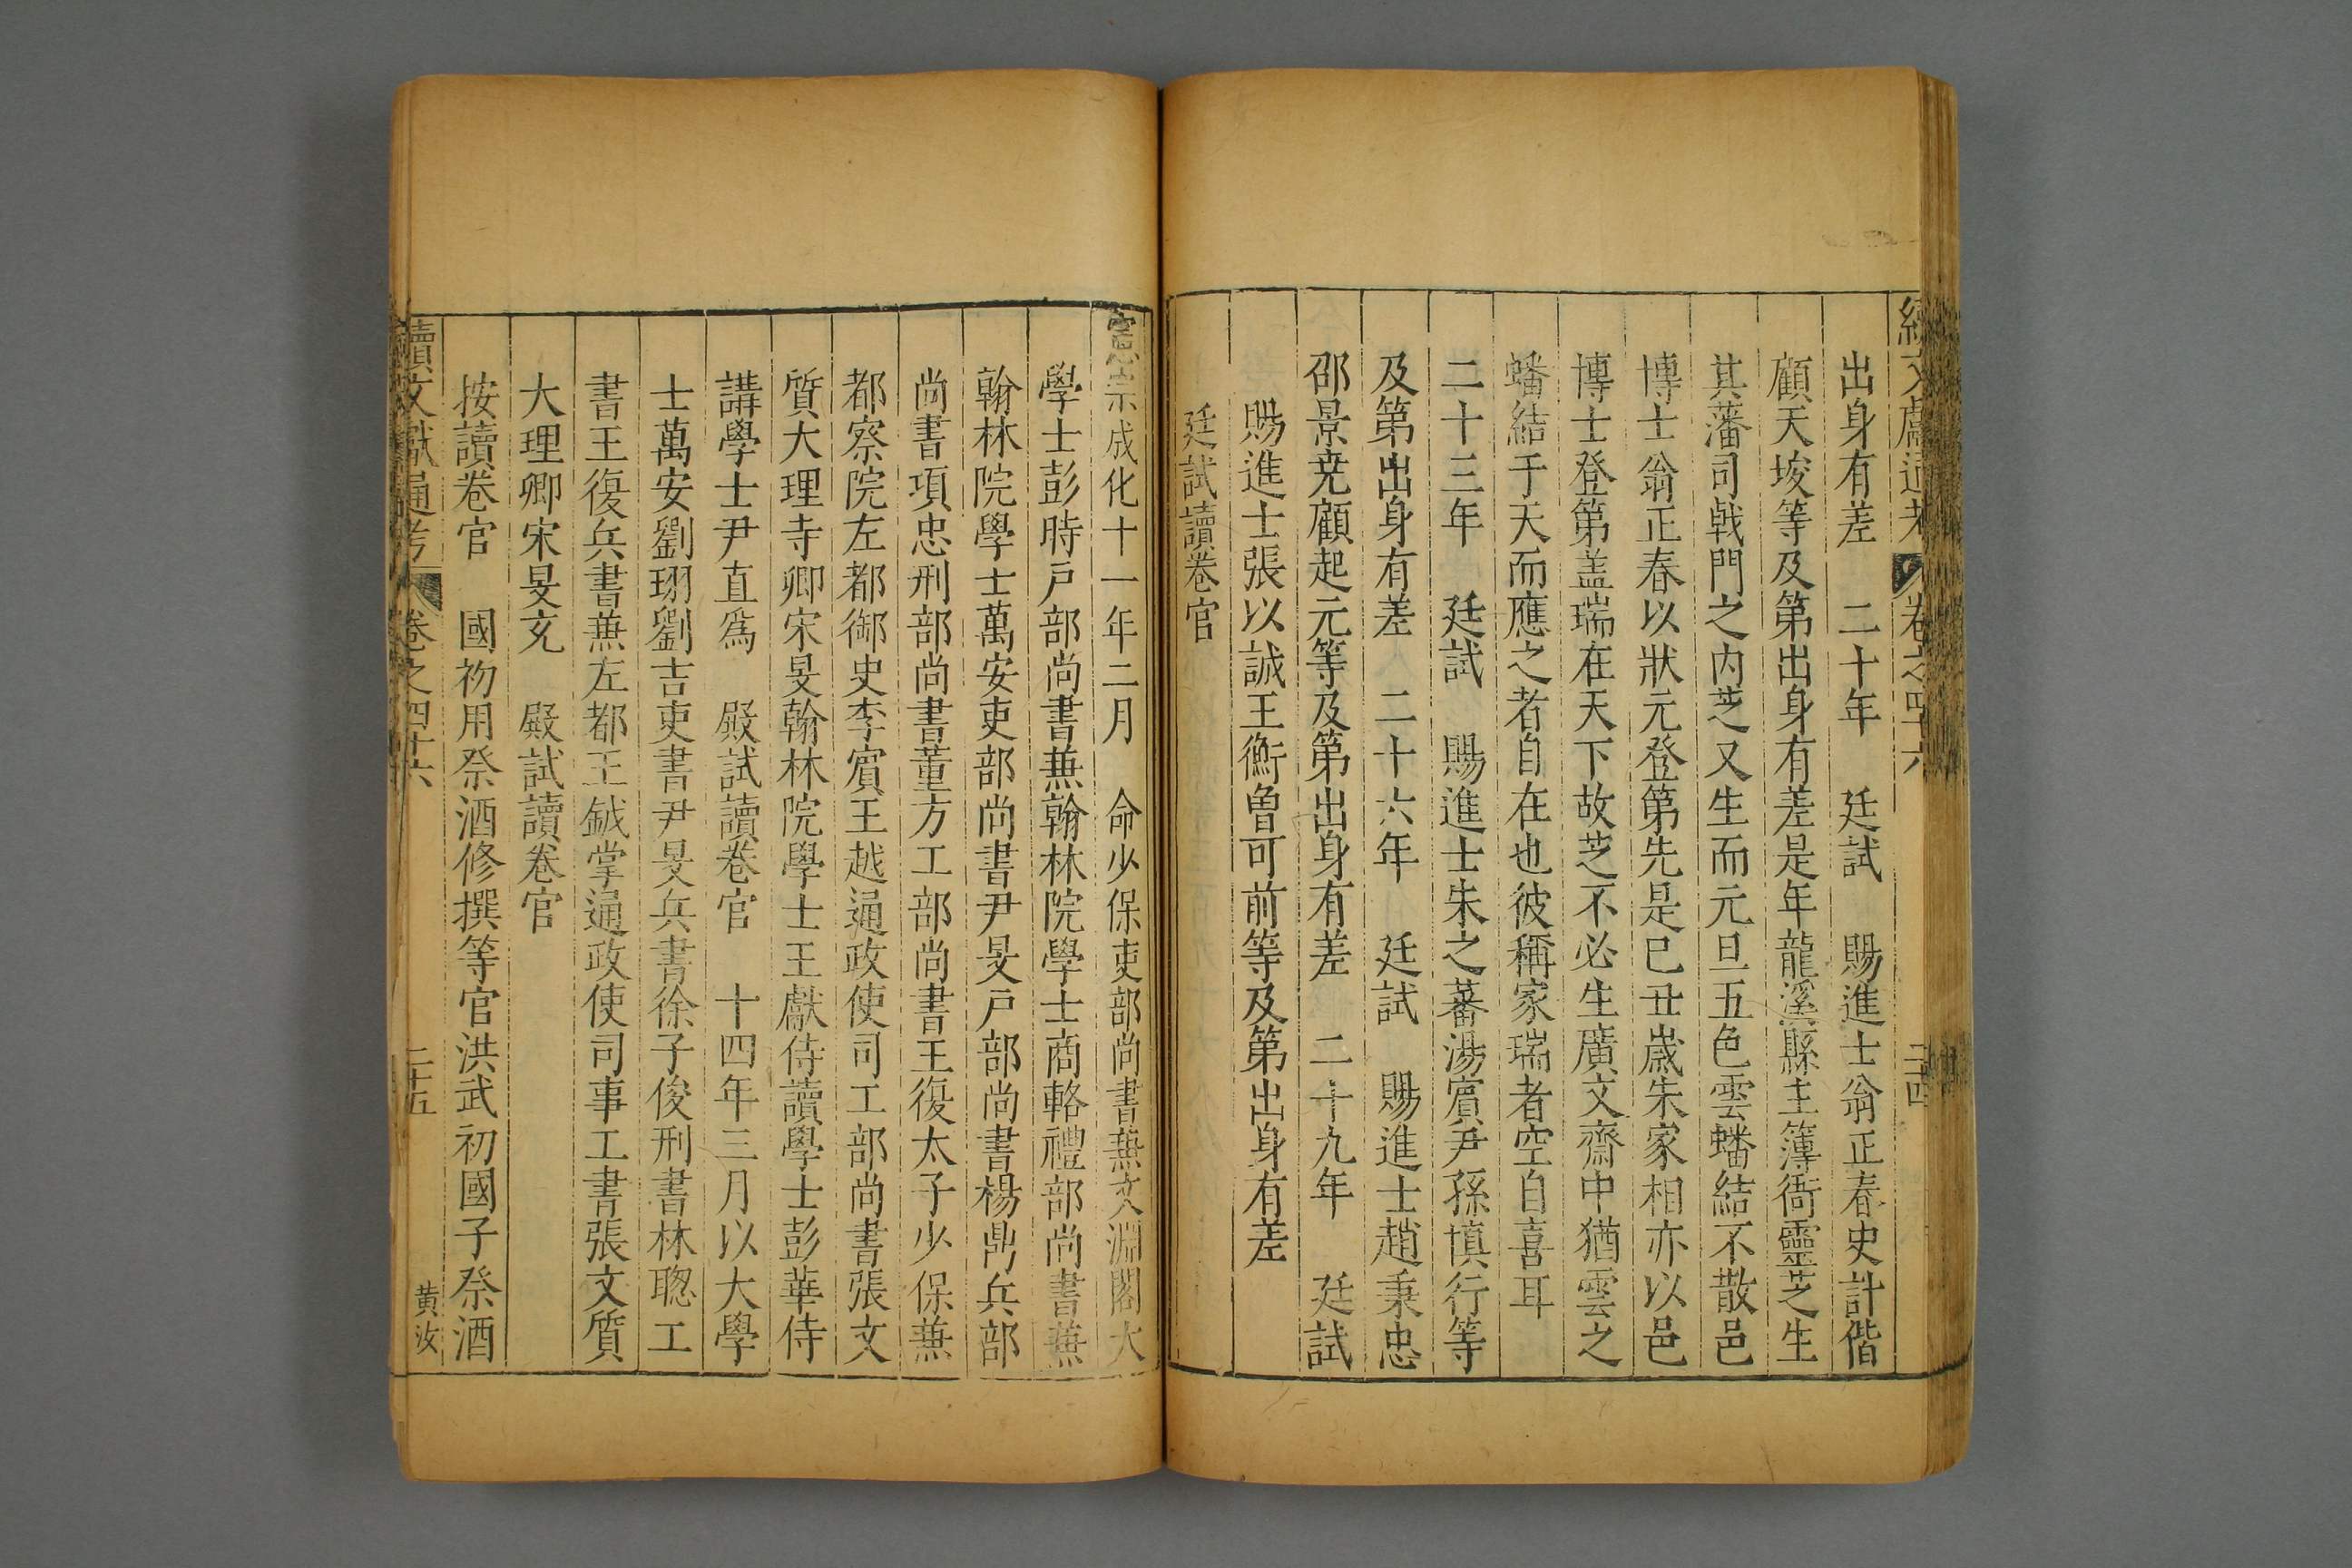 續文獻通考 卷之四十六 二十四
出身有差 二十年 廷試 賜進士翁正春史計偕
顧天埈等及第出身有差是年龍溪縣主簿衙靈芝生
其藩司戟門之内芝又生而元旦五色雲蟠結不散邑
博士翁正春以狀元登第先是己丑歲朱家相亦以邑
博士登第盖瑞在天下故芝不必生廣文齋中猶雲之
蟠結于天而應之者自在也彼稱家瑞者空自喜耳
二十三年 廷試 賜進士朱之蕃湯賔尹孫慎行等
及第出身有差 二十六年 廷試 賜進士趙秉忠
邵景尭顧起元等及第出身有差 二十九年 廷試
賜進士張以誠王衡曾可前等及第出身有差
廷試讀卷官
憲宗成化十一年二月 命少保吏部尚書蕪文淵閣大
學士彭時戸部尚書蕪翰林院學士商輅禮部尚書蕪
翰林院學士萬安吏部尚書尹旻戸部尚書楊鼎兵部
尚書項忠刑部尚書董方工部尚書王復太子少保蕪
都察院左都御史李賔王越通政使司工部尚書張文
質大理寺卿宋旻翰林院學士王獻侍讀學士彭華侍
講學士尹直爲 殿試讀卷官 十四年三月以大學
士萬安劉珝劉吉吏書尹旻兵書徐子俊刑書林聰工
書王復兵書蕪左都王鉞掌通政使司事工書張文質
大理卿宋旻充 殿試讀卷官
按讀卷官 國初用祭酒修撰等官洪武初國子祭酒
續文獻通考 卷之四十六 二十五 黄汝